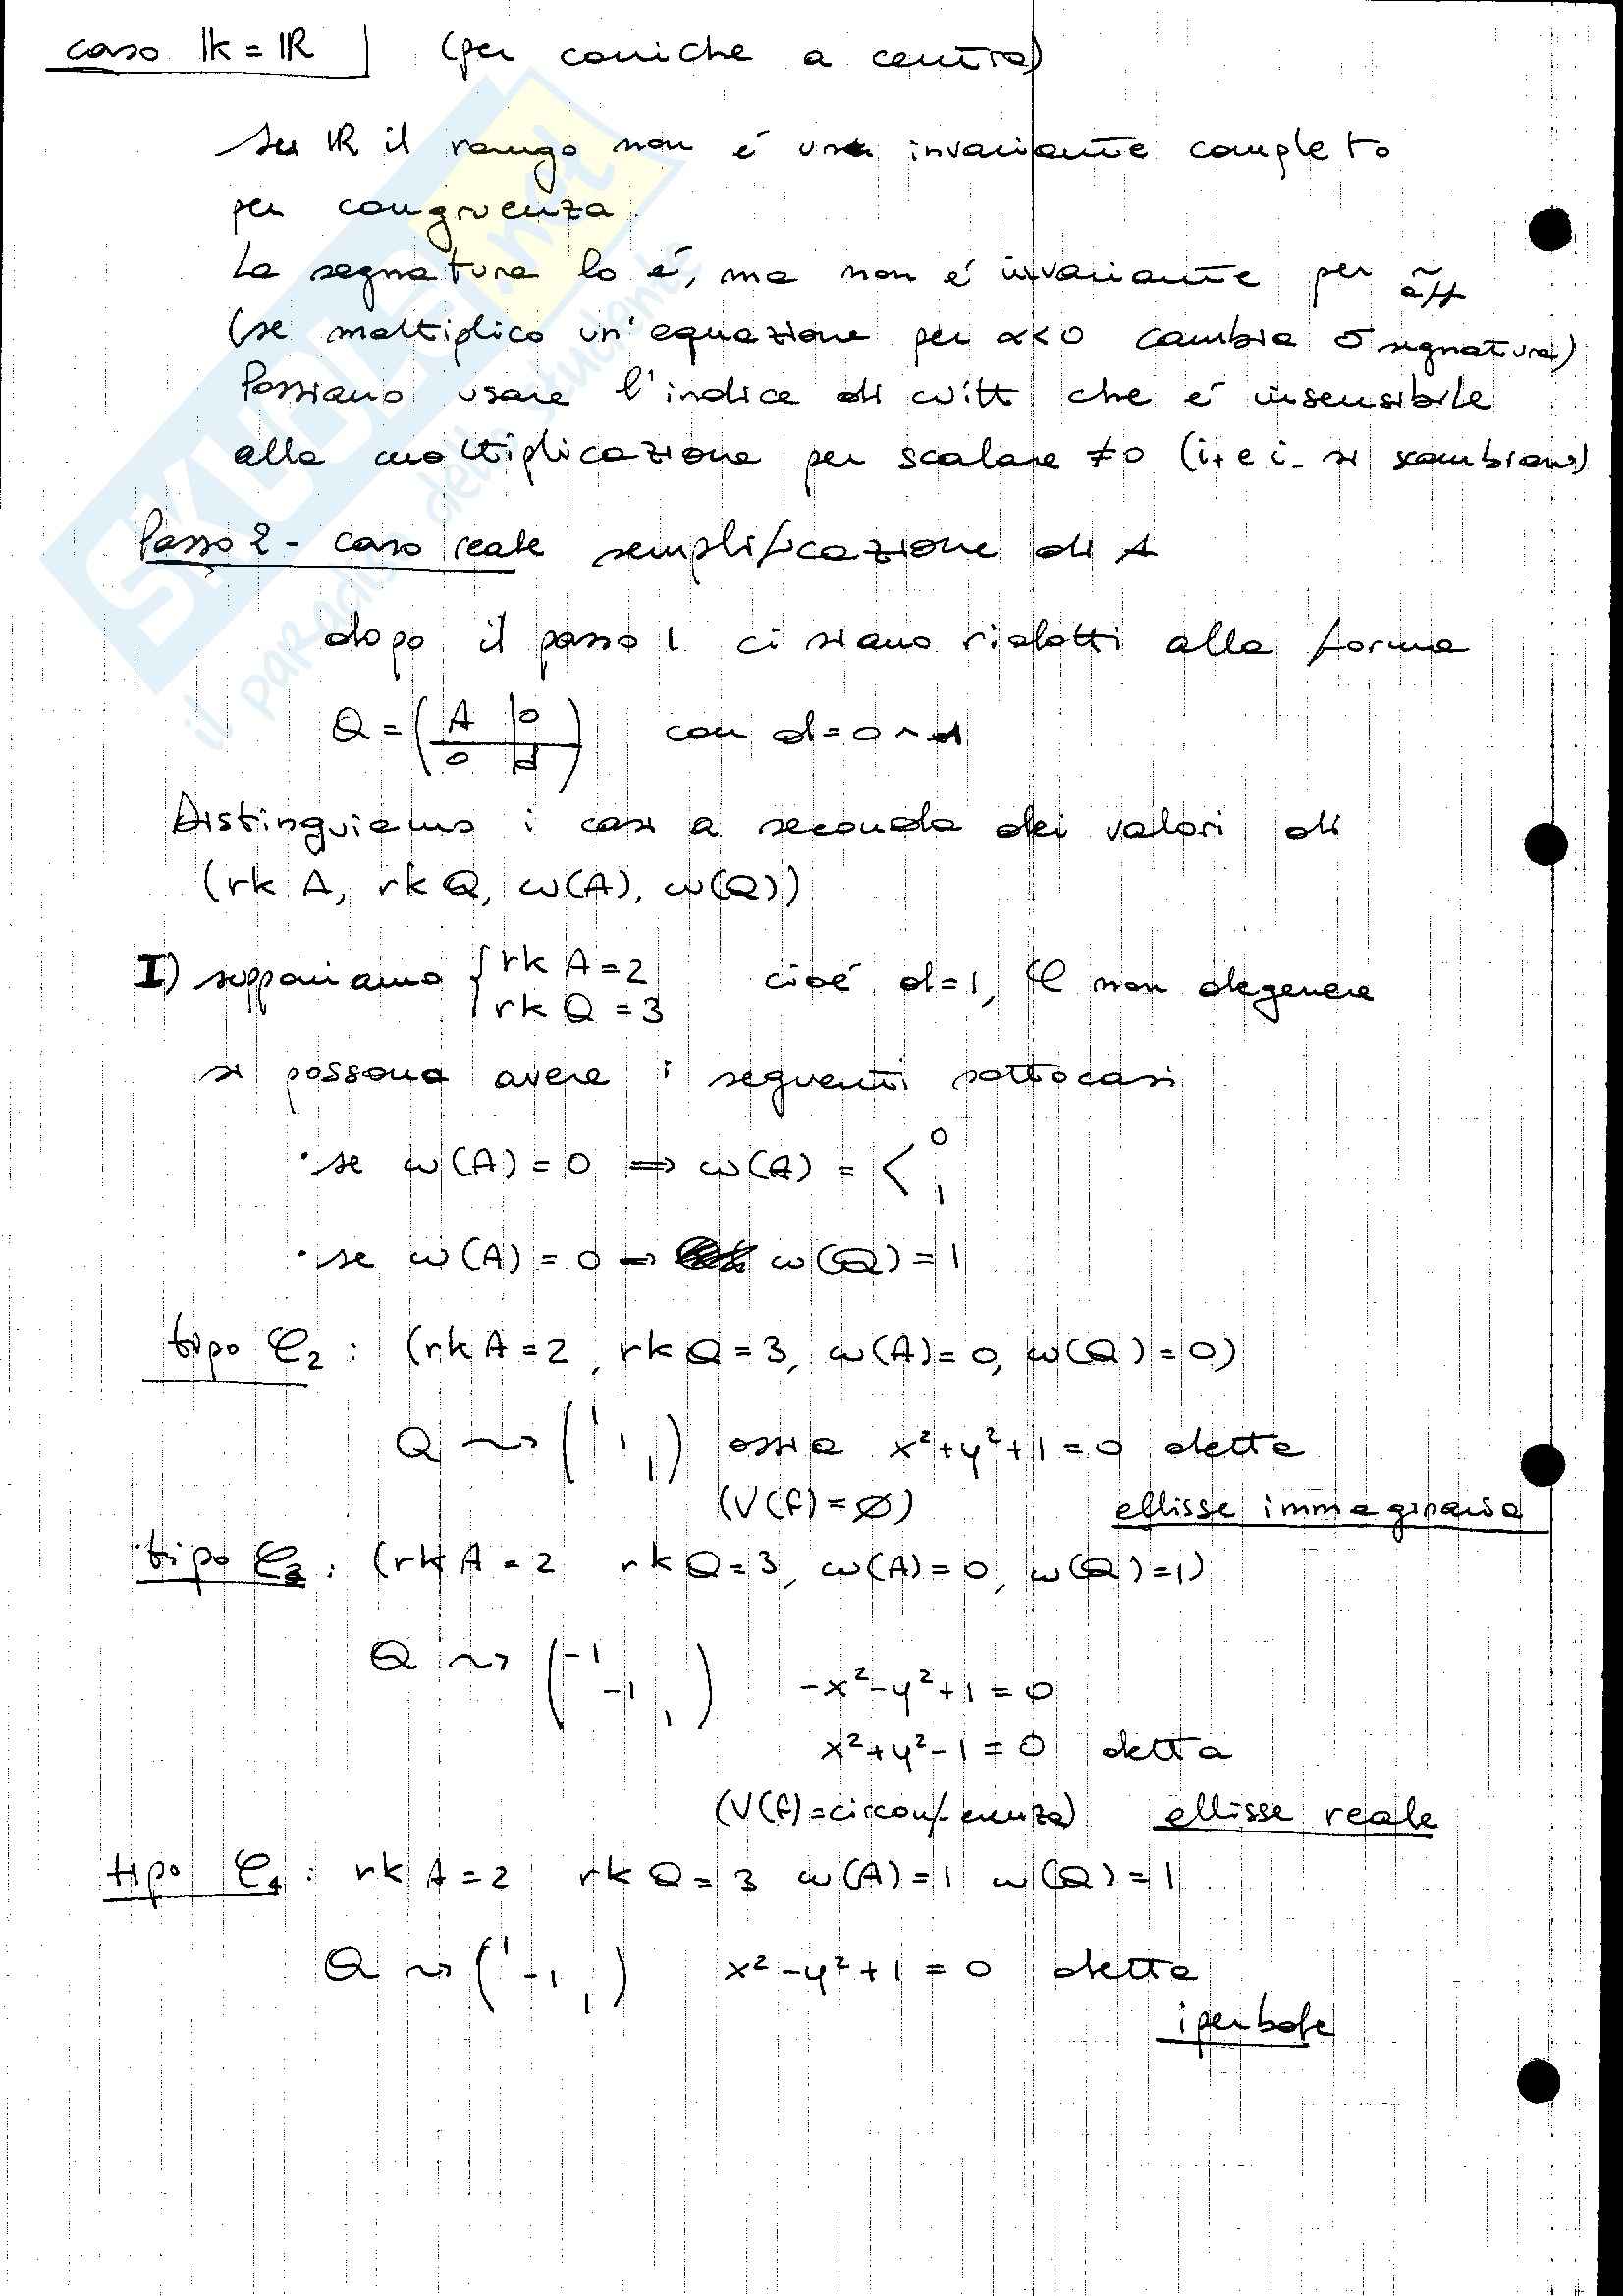 caso 𝕂 = ℝ (per coniche a centro)
Su ℝ il rango non é un invariante completo
per congruenza.
La segnatura lo é, ma non é invariante per ~aff
(se moltiplico un'equazione per α<0 cambia σ segnatura)
Possiamo usare l'indice di Witt che é insensibile
alla moltiplicazione per scalare ≠0 (i₊ e i₋ si scambiano)
Passo 2 - caso reale semplificazione di A
dopo il passo 1 ci siamo ridotti alla forma
Q = (A | 0 / 0 | d) con d=0 ~ 1
Distinguiamo i casi a seconda dei valori di
(rk A, rk Q, ω(A), ω(Q))
I) supponiamo { rk A = 2 cioé d=1, 𝒞 non degenere
rk Q = 3
si possono avere i seguenti sottocasi
· se ω(A) = 0 ⟹ ω(A) = < 0
1
· se ω(A) = 0 → ω(Q) = 1
tipo 𝒞₂ : (rk A = 2, rk Q = 3, ω(A) = 0, ω(Q) = 0)
Q ⇝ (1 1 1) ossia x²+y²+1=0 detta
(V(f)=∅) ellisse immaginaria
tipo 𝒞₃ : (rk A = 2 rk Q = 3, ω(A) = 0, ω(Q) = 1)
Q ⇝ (-1 -1 1) -x²-y²+1=0
x²+y²-1=0 detta
(V(f)=circonferenza) ellisse reale
tipo 𝒞₄ : rk A = 2 rk Q = 3 ω(A) = 1 ω(Q) = 1
Q ⇝ (1 -1 1) x²-y²+1=0 detta
iperbole
SKUOLA.net
il paradiso dello studente